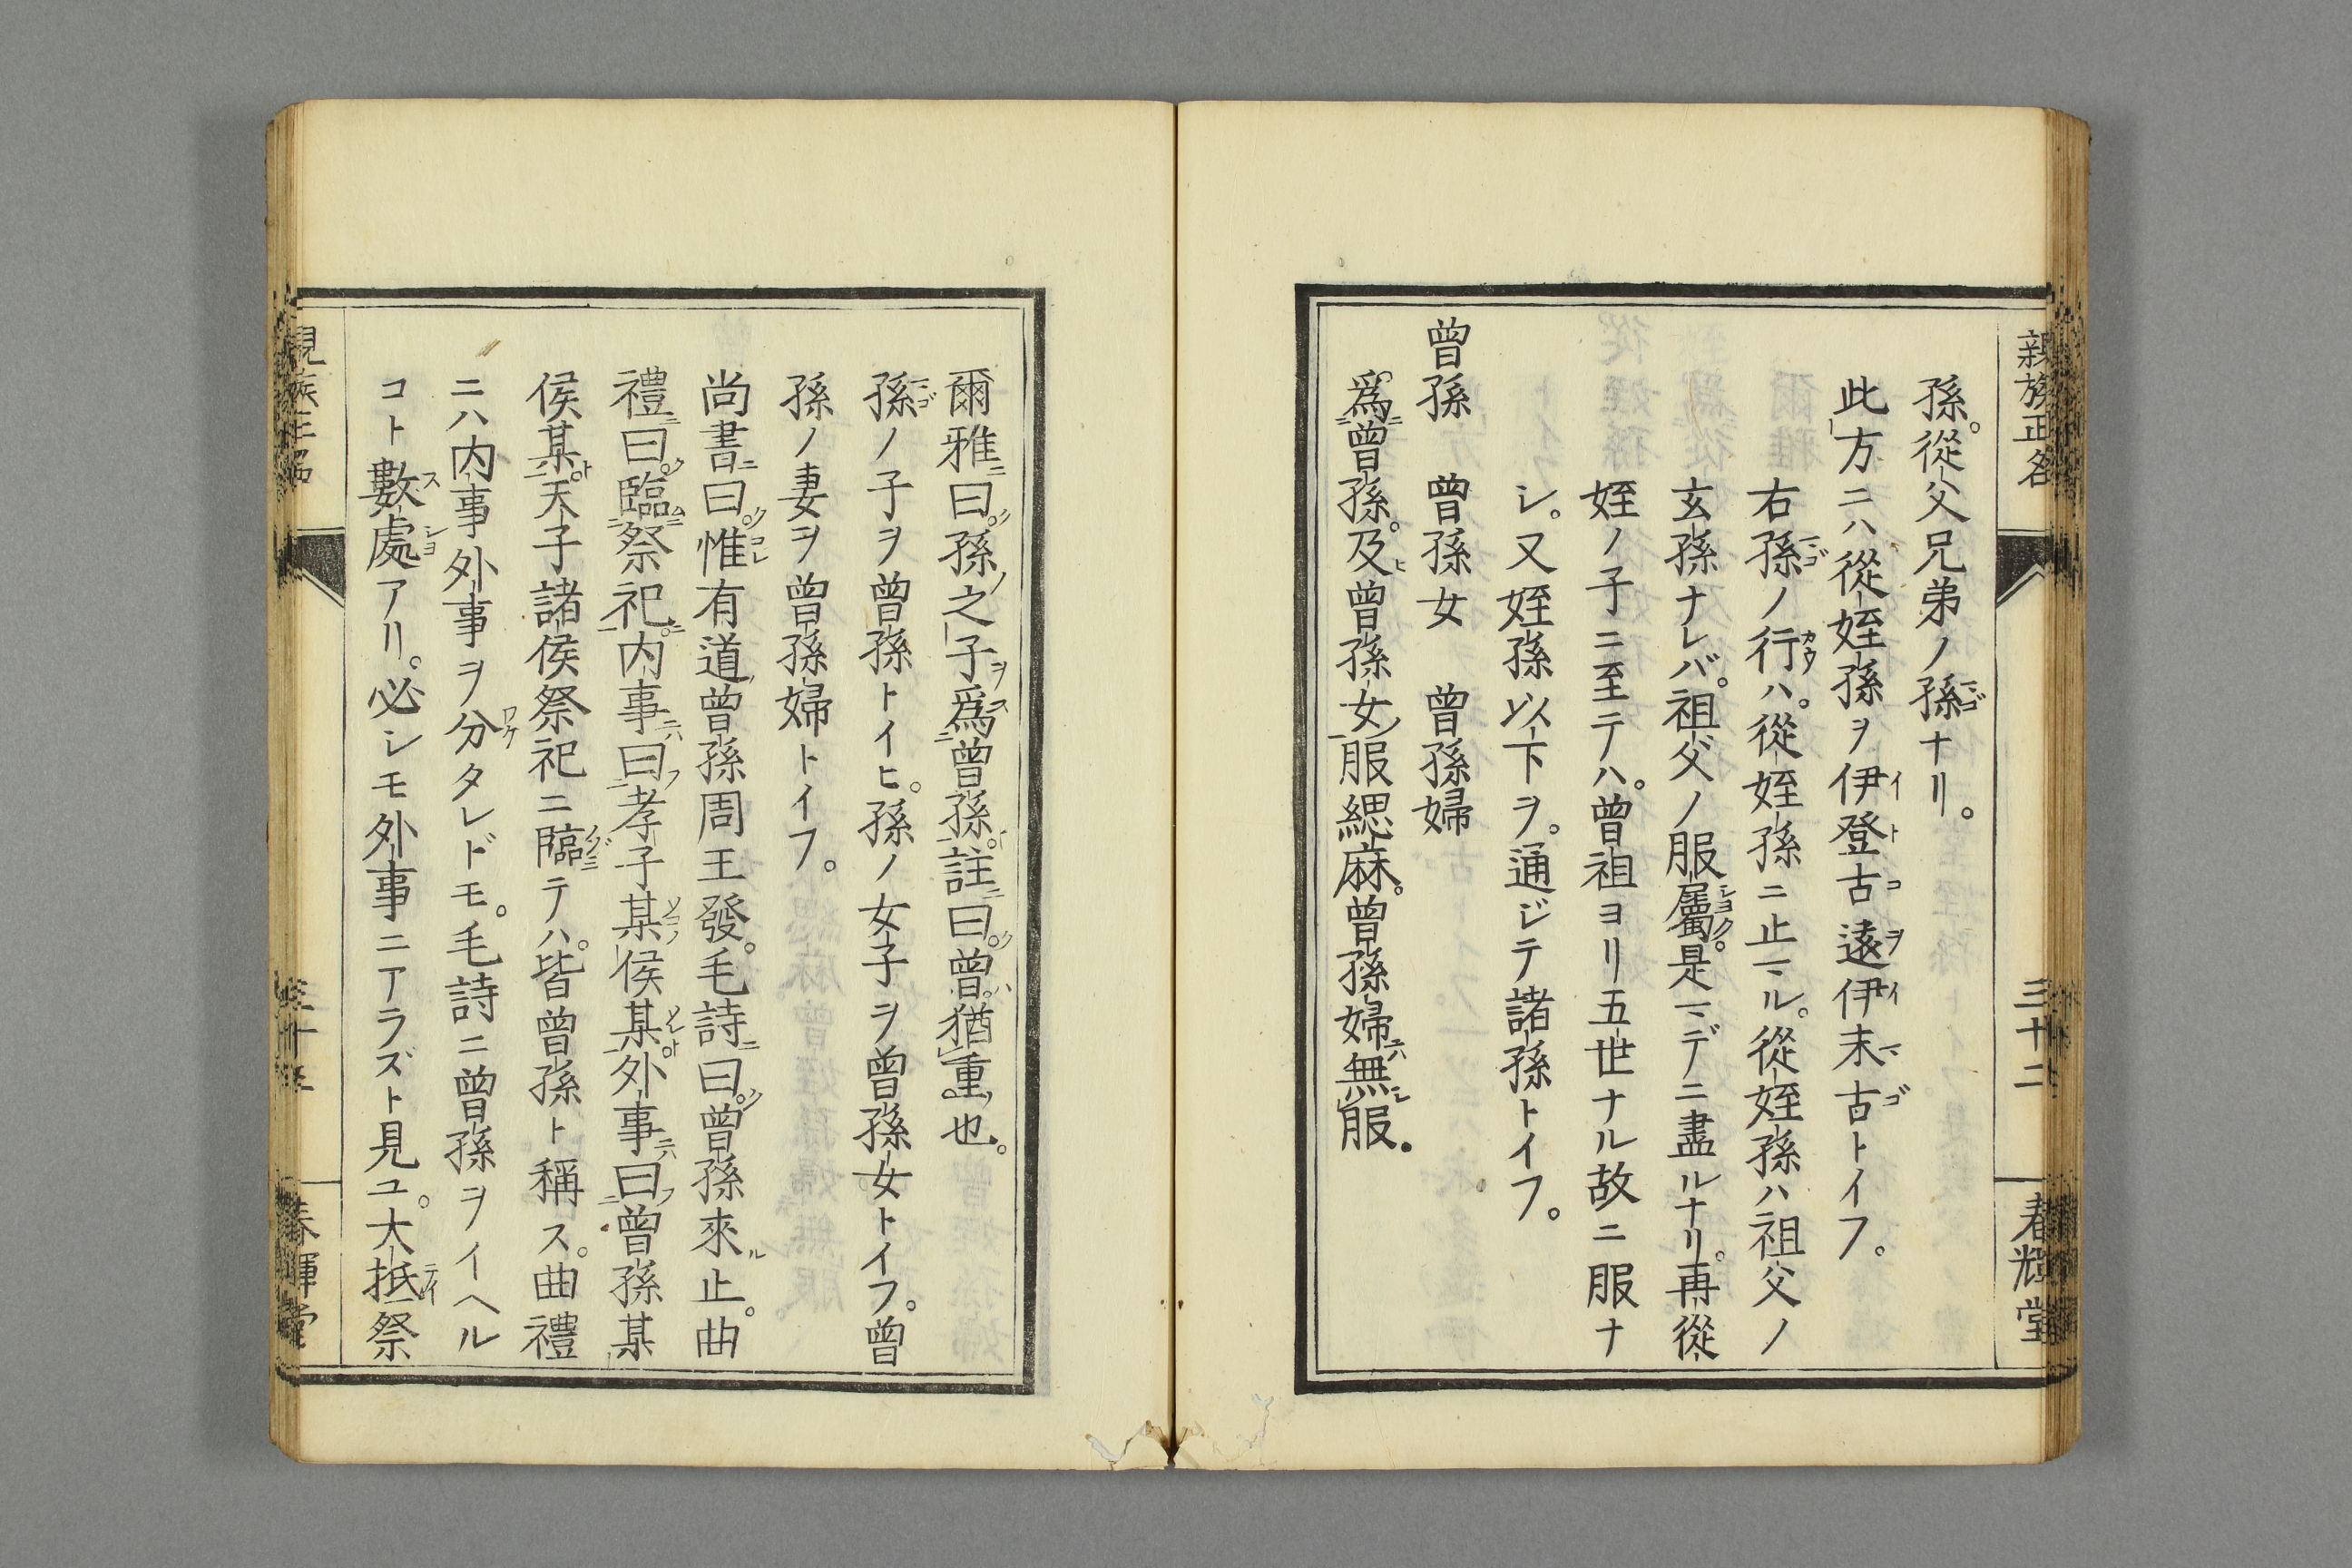 親族正名
三十二
春輝堂
孫。從父兄弟ノ孫ナリ。
此方ニハ從姪孫ヲ伊登古遠伊末古トイフ。
右孫ノ行ハ。從姪孫ニ止マル。從姪孫ハ祖父ノ
玄孫ナレバ。祖父ノ服屬。是マデニ盡ルナリ。再從
姪ノ子ニ至テハ。曾祖ヨリ五世ナル故ニ服ナ
シ。又姪孫以下ヲ。通ジテ諸孫トイフ。
曾孫 曾孫女 曾孫婦
爲曾孫。及曾孫女服緦麻。曾孫婦無服。
爾雅曰。孫之子爲曾孫。註曰。曾猶重也。
孫ノ子ヲ曾孫トイヒ。孫ノ女子ヲ曾孫女トイフ。曾
孫ノ妻ヲ曾孫婦トイフ。
尚書曰。惟有道曾孫周王發。毛詩曰。曾孫來止。曲
禮曰。臨祭祀。内事曰孝子某侯某。外事曰曾孫某
侯某。天子諸侯祭祀ニ臨テハ。皆曾孫ト稱ス。曲禮
ニハ内事外事ヲ分タレドモ。毛詩ニ曾孫ヲイヘル
コト數處アリ。必シモ外事ニアラズト見ユ。大抵祭
親族正名
春輝堂